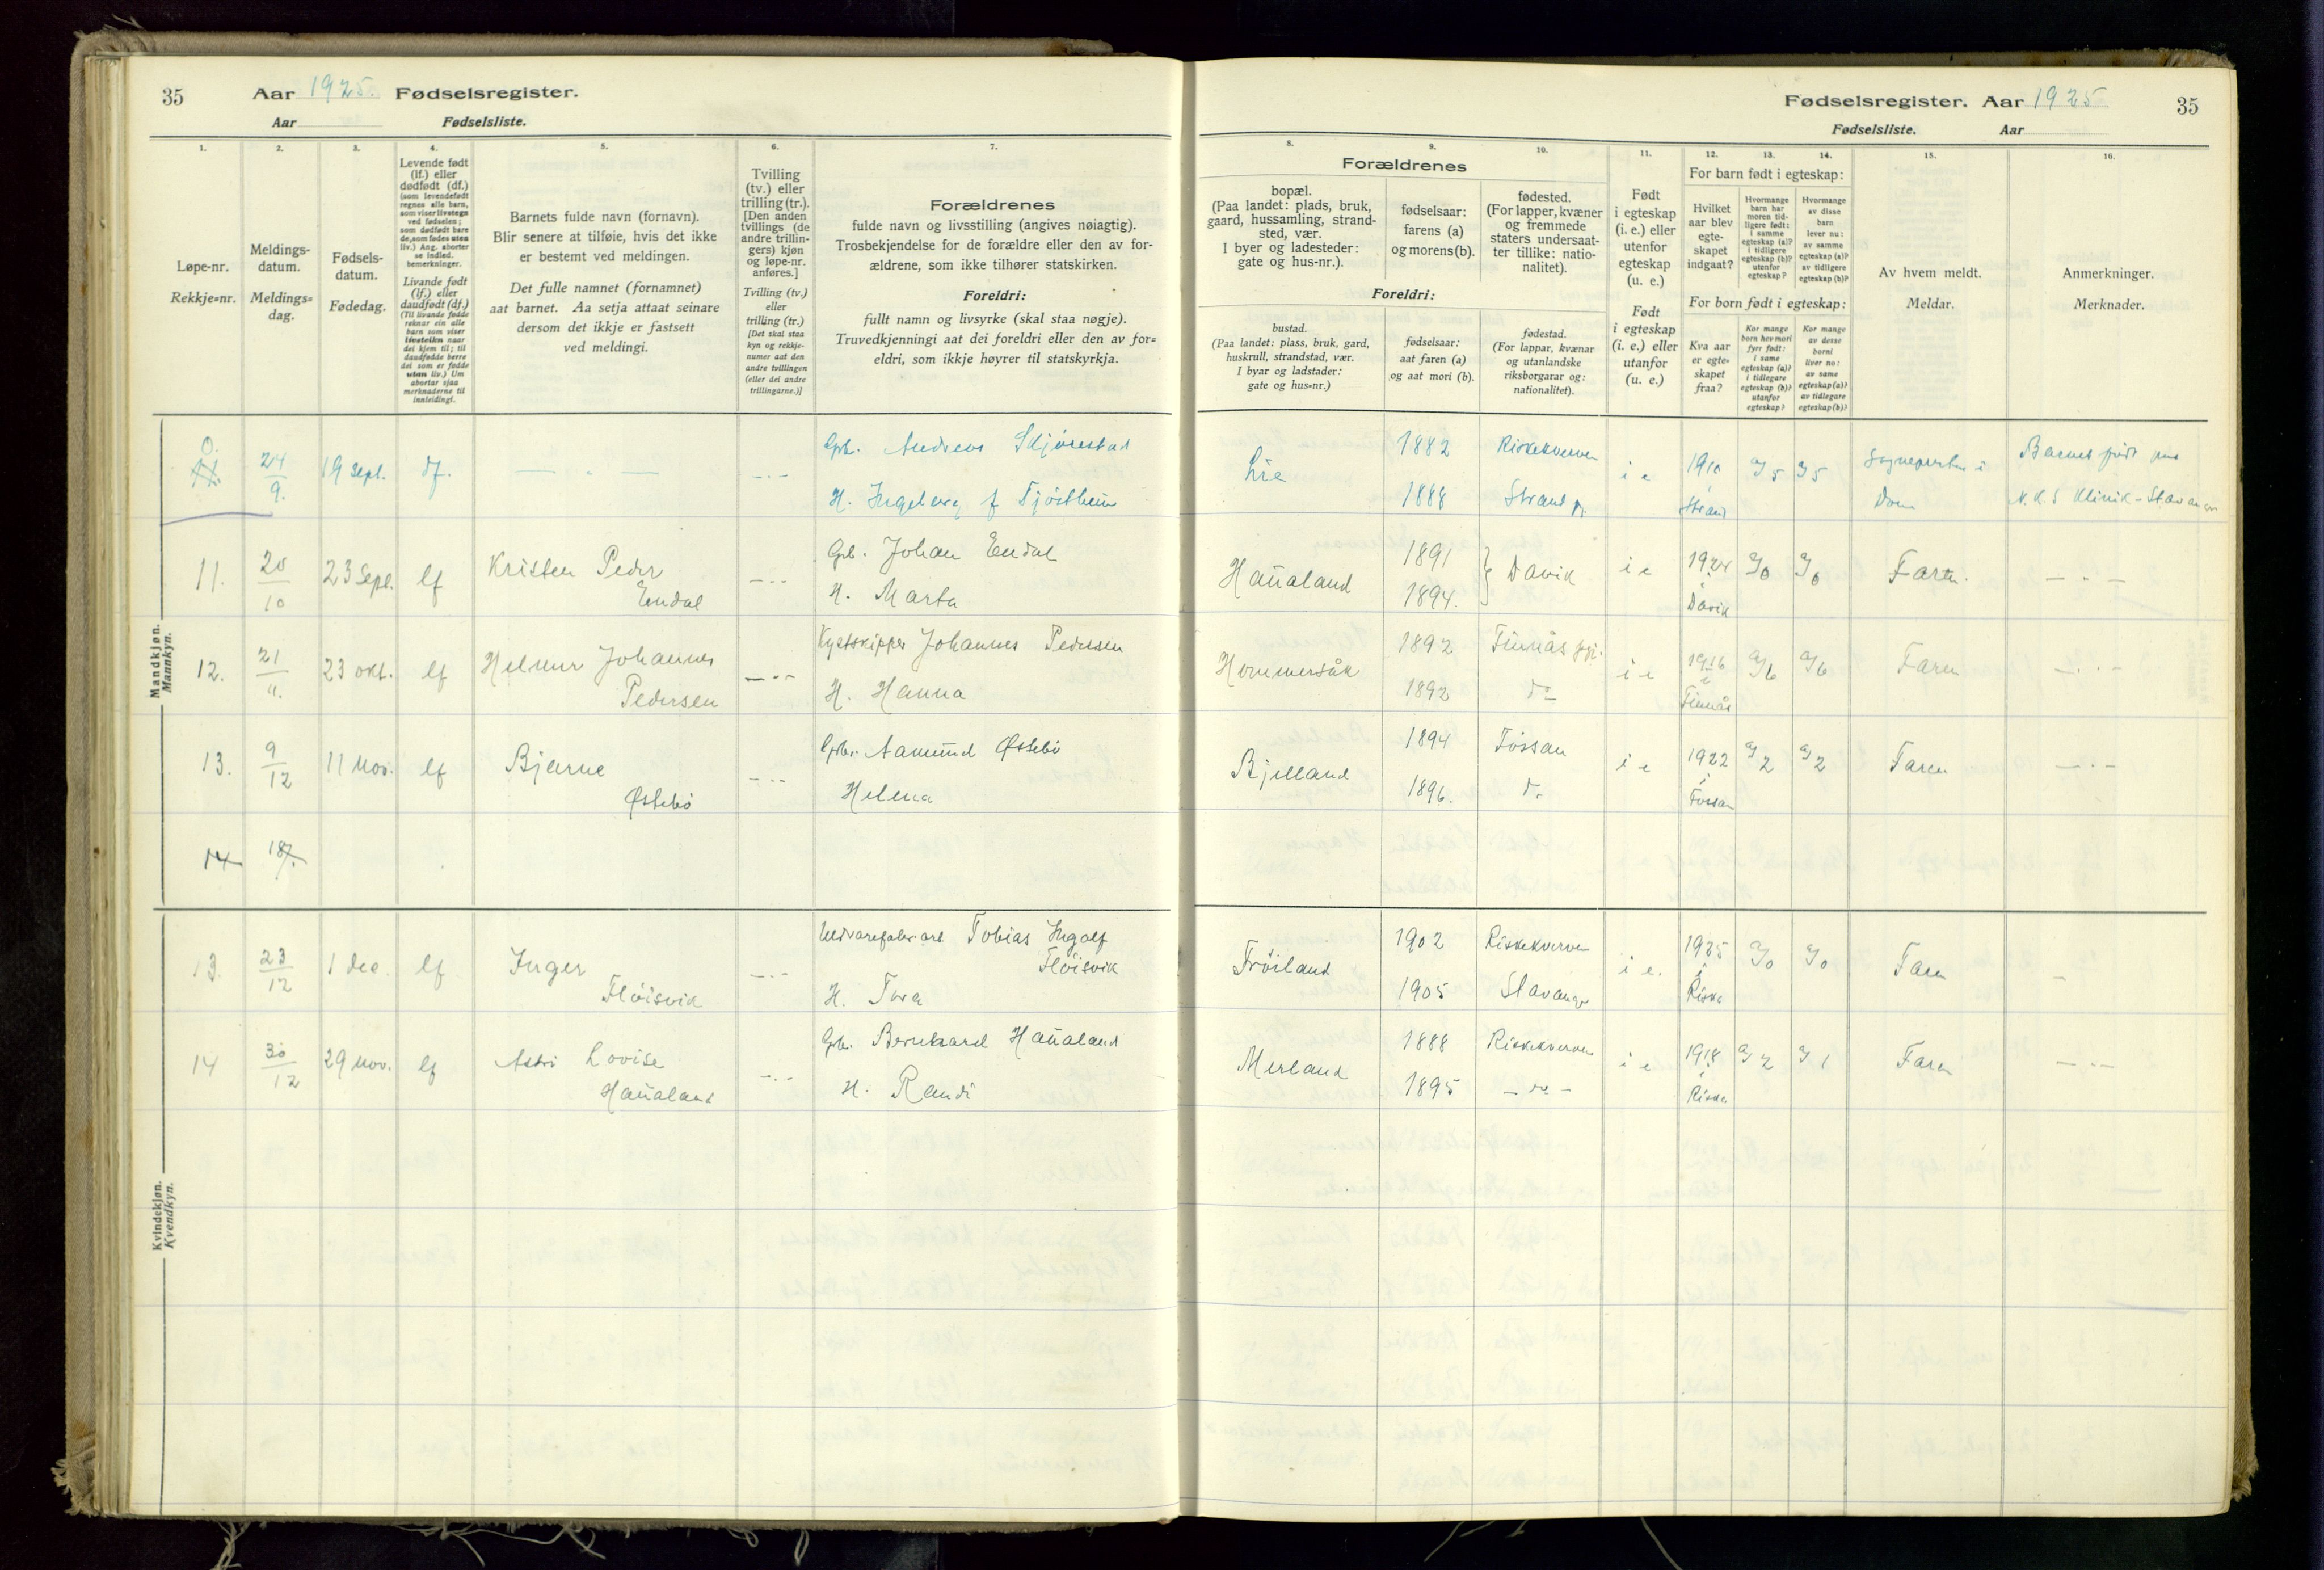 35 Aar 1925. Fødselsregister.
Aar Fødselsliste.
Fødselsregister. Aar 1925 35
Fødselsliste. Aar
1. 2. 3. 4. 5. 6. 7.
Løpe-nr.
Rekkje=nr.
Meldings-
datum.
Meldings=
dag.
Fødsels-
datum.
Fødedag.
Levende født
(lf.) eller
dødfødt (df.)
(som levendefødt
regnes alle barn,
som viser livstegn
ved fødselen;
som dødfødt bare
de, som fødes uten
liv.) Ang. aborter
se indled.
bemerkninger.
Livande født
(lf.) eller
daudfødt (df.)
(Til livande fødde
reknar ein alle
barn som viser
livsteikn naar
dei kjem til; til
daudfødde berre
dei som er fødde
utan liv.) Um
abortar sjaa
merknaderne til
innleidingi.
Barnets fulde navn (fornavn).
Blir senere at tilføie, hvis det ikke
er bestemt ved meldingen.
Det fulle namnet (fornamnet)
aat barnet. Aa setja attaat seinare
dersom det ikkje er fastsett
ved meldingi.
Tvilling
(tv.) eller
trilling (tr.).
[Den anden
tvillings (de
andre trillin-
gers) kjøn
og løpe-nr.
anføres.]
Tvilling (tv.)
eller
trilling (tr.)
[Det skal staa
kyn og rekkje-
numer aat den
andre tvillingen
(eller dei andre
trillingarne.)]
Forældrenes
fulde navn og livsstilling (angives nøiagtig).
Trosbekjendelse for de forældre eller den av for-
ældrene, som ikke tilhører statskirken.
Foreldri:
fullt namn og livsyrke (skal staa nøgje).
Truvedkjenningi aat dei foreldri eller den av for=
eldri, som ikkje høyrer til statskyrkja.
8. 9. 10. 11. 12. 13. 14. 15. 16.
Forældrenes
bopæl.
(Paa landet: plads, bruk,
gaard, hussamling, strand-
sted, vær.
I byer og ladesteder:
gate og hus-nr.).
fødselsaar:
farens (a)
og morens (b).
fødested.
(For lapper, kvæner
og fremmede
staters undersaat-
ter tillike: natio-
nalitet).
Foreldri:
bustad.
(Paa landet: plass, bruk, gard,
huskrull, strandstad, vær.
I byar og ladstader:
gate og hus=nr.)
fødselsaar:
aat faren (a)
og aat mori (b).
fødestad.
(For lappar, kvænar
og utanlandske
riksborgarar og:
nationalitet).
Født
i egteskap
(i. e.) eller
utenfor
egteskap
(u. e.)
Født
i egteskap
(i. e.) eller
utanfor
(u. e.)
For barn født i egteskap:
Hvilket
aar blev
egte-
skapet
indgaat?
Hvormange
barn har
moren tid-
ligere født:
i samme
egteskap (a)?
i tidligere
egteskap (b)?
utenfor
egteskap?
Hvormange
av disse
barn
lever nu:
av samme
egteskap (a)?
av tidligere
egteskap (b)?
For born født i egteskap:
Kva aar
er egte=
skapet
fraa?
Kor mange
born hev mori
fyrr født:
i same
egteskap (a)?
i tidlegare
egteskap (b)?
utanfor
egteskap?
Kor mange
av desse
borni
liver no:
av same
egteskap (a)?
av tidlegare
egteskap (b)?
Av hvem meldt.
Meldar.
Anmerkninger.
Merknader.
Mandkjøn.
Mannkyn.
0. 11. 24/9. 19 Sept. df. — " — Gbr. Andreas Skjörestad
H. Ingeborg f Tjöstheim
Lie 1882 Riskekverven
1888 Strand
i e 1910 i Strand a/5 a/5 Sogneprest i Dom
Barnet født paa
N.K.S Klinik - Stavanger
11. 20/10 23 Sept. lf Kristen Peder
Endal
Gb. Johan Endal
H. Marta
Haualand 1891
1894. } Davik i e 1924 i Davik a/0 a/0 Faren. — " —
12. 21/11. 23 okt. lf Helmer Johannes
Pedersen
Kystskipper Johannes Pedersen
H. Hanna
Hommersåk 1892 Finnås
1892 do
i e 1916 i Finnås a/6 a/6 Faren
13. 9/12 11 Nov. lf Bjarne
Østebö
Gbr. Aamund Østebö
Helena
Bjelland 1894 Fossan
1896. do
i e 1922 i Fossan a/2 a/2 Faren — " —
14 18/
Kvindekjøn.
Kvendkyn.
13. 23/12 1 dec. lf Inger
Flöisvik
Tobias Ingolf
Flöisvik
H. Tora
Fröiland 1902 Riskekverven
1905 Stavanger
i e. 1925 i Riska a/0 a/0 Faren —
14 30/12 29 Nov. lf Astri Lovise
Haualand
Gb. Bernhard Haualand
H. Randi
Merland 1888 Riskekverven
1895 — do —
i e 1918 i Riska a/2 a/1 Faren — " —